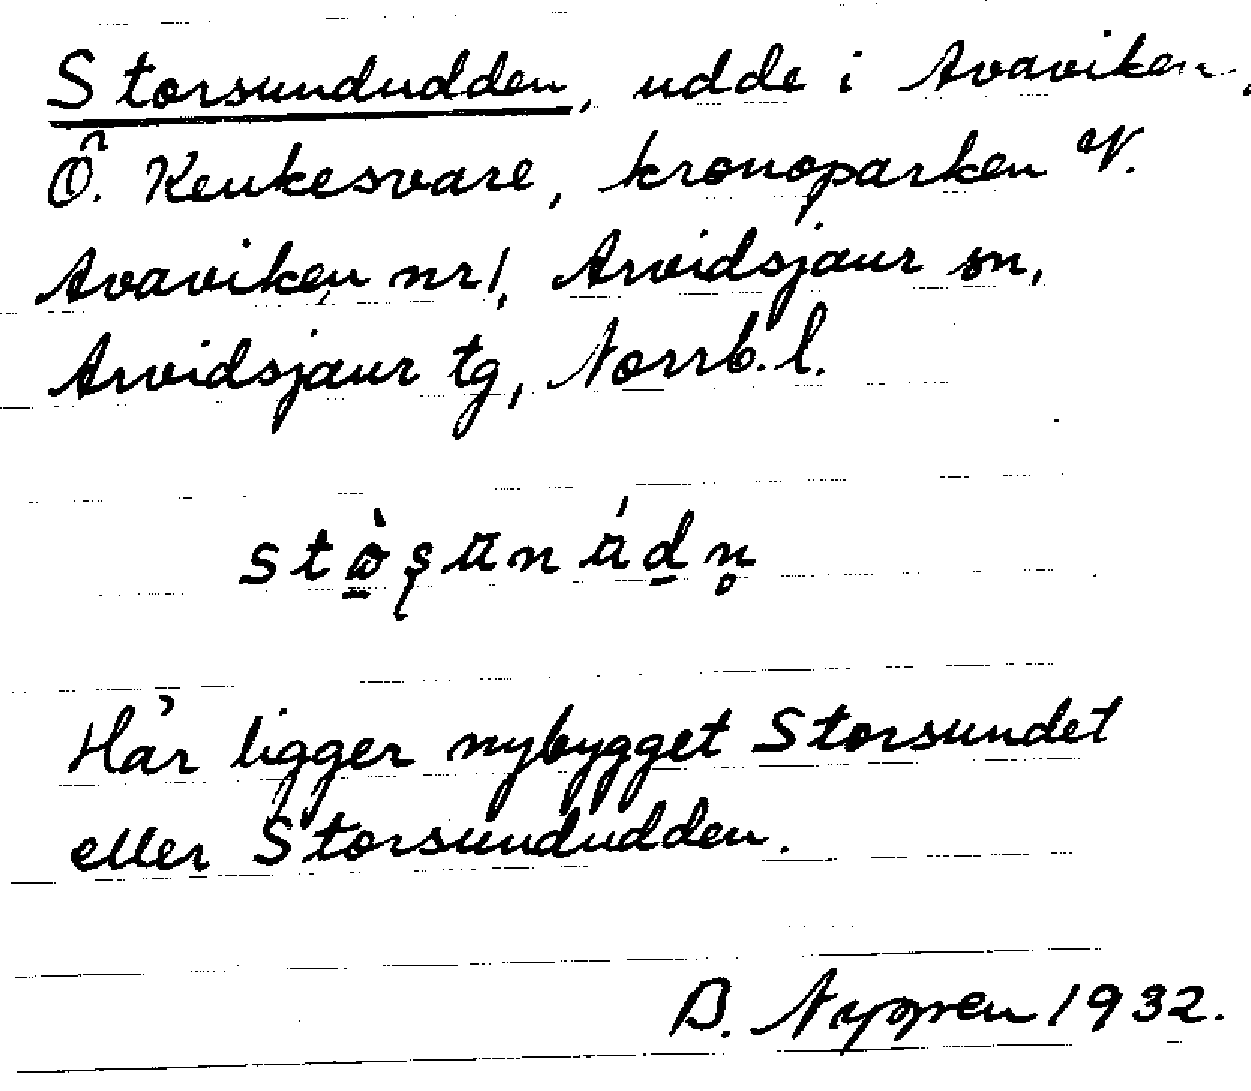 Storsundudden, udde i Avaviken,
Ö. Keukesvare, kronoparken V.
Avaviken nr 1, Arvidsjaur sn,
Arvidsjaur tg, Norrb. l.
Här ligger nybygget Storsundet
eller Storsundudden.
B. Nygren 1932.